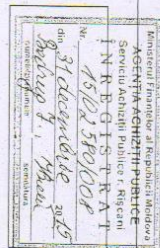 Ministerul Finanțelor al Republicii Moldova
AGENȚIA ACHIZIȚII PUBLICE
Serviciu Achiziții Publice r. Rîșcani
ÎNREGISTRAT
Nr. 15/02580/008
din 31 decembrie 2015
semnătura